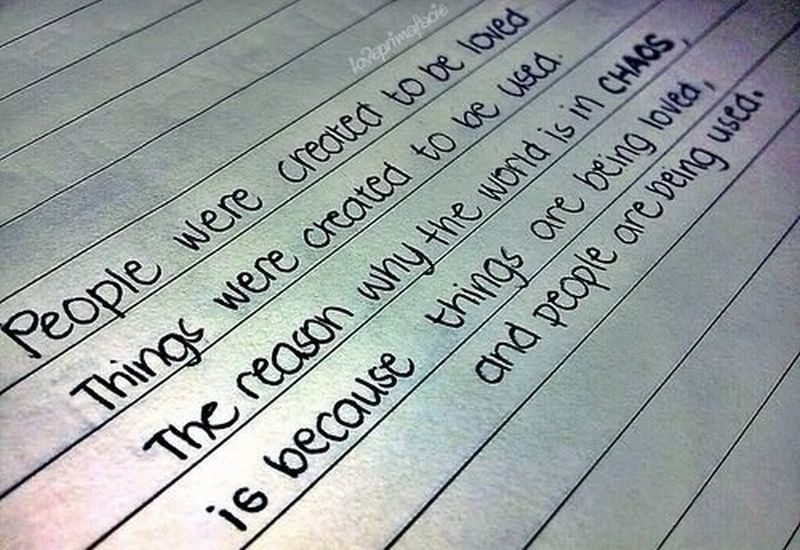 loveprimafacie
People were created to be loved
Things were created to be used.
The reason why the world is in CHAOS,
is because things are being loved,
and people are being used.